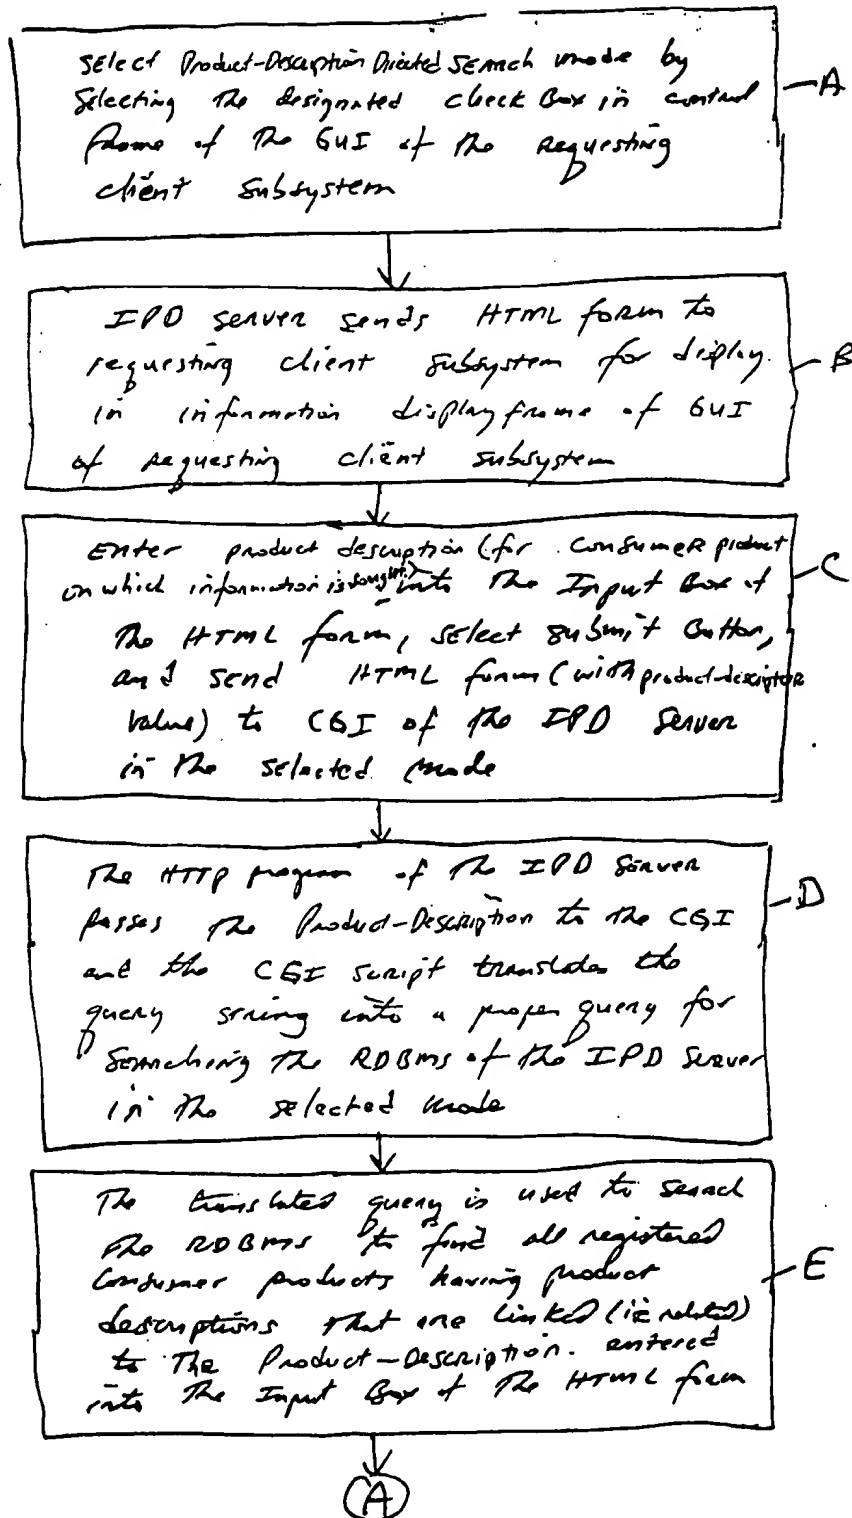 Select Product-Description Directed Search mode by
Selecting the designated check Box in control
frame of the GUI of the requesting
client subsystem
A
IPD server sends HTML form to
requesting client subsystem for display
in information display frame of GUI
of requesting client subsystem
B
Enter product description (for consumer product
on which information is sought) into the Input Box of
the HTML form, select submit Button,
and send HTML form (with product-descriptor
value) to CGI of the IPD Server
in the selected mode
C
The HTTP program of the IPD Server
passes the Product-Description to the CGI
and the CGI script translates the
query string into a proper query for
Searching the RDBMS of the IPD Server
in the selected mode
D
The translated query is used to search
the RDBMS to find all registered
Consumer products having product
descriptions that are linked (ie related)
to the Product-Description. entered
into the Input Box of the HTML form
E
A